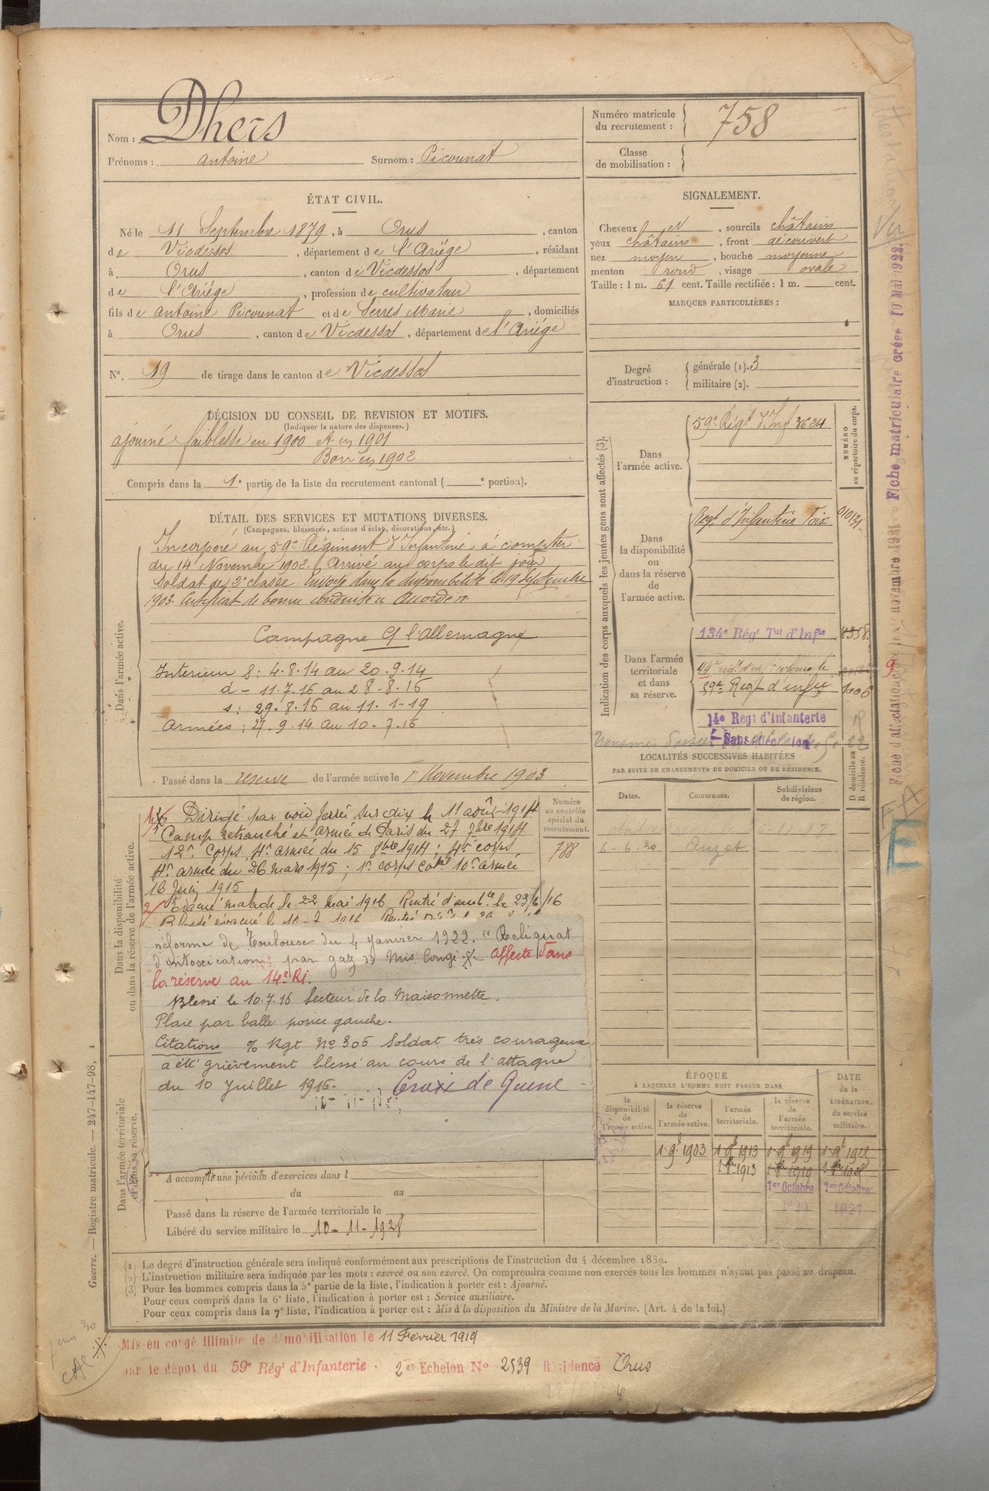 Nom : Dhers
Prénoms : antoine Surnom : Picounat
Numéro matricule du recrutement : 758
Classe de mobilisation :
ÉTAT CIVIL.
Né le 11 Septembre 1879, à Orus, canton
de Vicdessos, département de l'Ariége, résidant
à Orus, canton de Vicdessos, département
de l'Ariége, profession de cultivateur
fils de antoine Picounat et de Serres Marie, domiciliés
à Orus, canton de Vicdessos, département de l'Ariége
N°. 19 de tirage dans le canton de Vicdessos
SIGNALEMENT.
Cheveux et, sourcils châtains
yeux châtains, front découvert
nez moyen, bouche moyenne
menton rond, visage ovale
Taille : 1 m. 61 cent. Taille rectifiée : 1 m. cent.
MARQUES PARTICULIÈRES :
Degré d'instruction : générale (1). 3
militaire (2).
DÉCISION DU CONSEIL DE REVISION ET MOTIFS.
(Indiquer la nature des dispenses.)
ajourné faiblesse en 1900 et en 1901
Bon en 1902
Compris dans la 1e partie de la liste du recrutement cantonal ( e portion).
DÉTAIL DES SERVICES ET MUTATIONS DIVERSES.
(Campagnes, blessures, actions d'éclat, décorations, etc.)
Dans l'armée active.
Incorporé au 59e Régiment d'Infanterie à compter
du 14 Novembre 1902. Arrivé au corps le dit jour
Soldat de 2e classe. Envoyé dans la disponibilité le 19 Septembre
1903 Certificat de bonne conduite accordé
Campagne C/ l'allemagne
Interieur S : 4-8-14 au 20-9-14
d - 11-7-16 au 28-8-16
s : 29-8-16 au 11-1-19
Armées : 27-9-14 au 10-7-16
Passé dans la réserve de l'armée active le 1 Novembre 1903
Indication des corps auxquels les jeunes gens sont affectés (3).
NUMÉRO au répertoire du corps.
Dans l'armée active. 59e Régt d'Inf
Dans la disponibilité ou dans la réserve de l'armée active.
Regt d'Infanterie Foix
Dans l'armée territoriale et dans sa réserve.
134e Régt Tal d'Infie
59e Regt d'infie 1006
14e Regt d'Infanterie
Sans affectation
LOCALITÉS SUCCESSIVES HABITÉES
PAR SUITE DE CHANGEMENTS DE DOMICILE OU DE RÉSIDENCE.
D domicile ou R résidence.
Dates. Communes. Subdivisions de région.
6-6-20 Auzat
Dans la disponibilité ou dans la réserve de l'armée active.
Numéro au contrôle spécial du recrutement.
788
Dirigé par voie ferrée sur aix le 11 août 1914
Camp retranché et armée de Paris du 27 7bre 1914
12e Corps 4e armée du 15 8bre 1914 ; 4e corps
4e armée du 26 mars 1915 ; 1e corps col 10e armée
16 Juin 1915
2/ Evacué malade le 22 mai 1916 Rentré d'ambce le 23/6/16
réforme de Toulouse du 4 Janvier 1922. "Reliquat
d'intoxication par gaz Mis Congé affecté dans
la réserve au 14e RI.
Blessé le 10-7-16 Secteur de la Maisonnette.
Plaie par balle pouce gauche.
Citations % Rgt No 306 Soldat très courageux
a été grièvement blessé au cours de l'attaque
du 10 juillet 1916. Croix de Guerre
Dans l'armée territoriale et dans sa réserve.
A accompli une période d'exercices dans l
du au
Passé dans la réserve de l'armée territoriale le
Libéré du service militaire le 10-11-1928
ÉPOQUE
À LAQUELLE L'HOMME DOIT PASSER DANS
DATE de la LIBÉRATION du service militaire.
la disponibilité de l'armée active. la réserve de l'armée active. l'armée territoriale. la réserve de l'armée territoriale.
1 9e 1903 1 9e 1913 1 9e 1919
1er Octobre 1er Octobre
1927
(1) Le degré d'instruction générale sera indiqué conformément aux prescriptions de l'instruction du 4 décembre 1889.
(2) L'instruction militaire sera indiquée par les mots : exercé ou non exercé. On comprendra comme non exercés tous les hommes n'ayant pas passé au drapeau.
(3) Pour les hommes compris dans la 5e partie de la liste, l'indication à porter est : Ajourné.
Pour ceux compris dans la 6e liste, l'indication à porter est : Service auxiliaire.
Pour ceux compris dans la 7e liste, l'indication à porter est : Mis à la disposition du Ministre de la Marine. (Art. 4 de la loi.)
Mis en congé illimité de démobilisation le 11 Février 1919
par le dépôt du 59e Régt d'Infanterie. 2e Echelon No 2539 Résidence Orus
Guerre. — Registre matricule. — 247-147-98.
Fiche matriculaire créée 10 Mai 1922